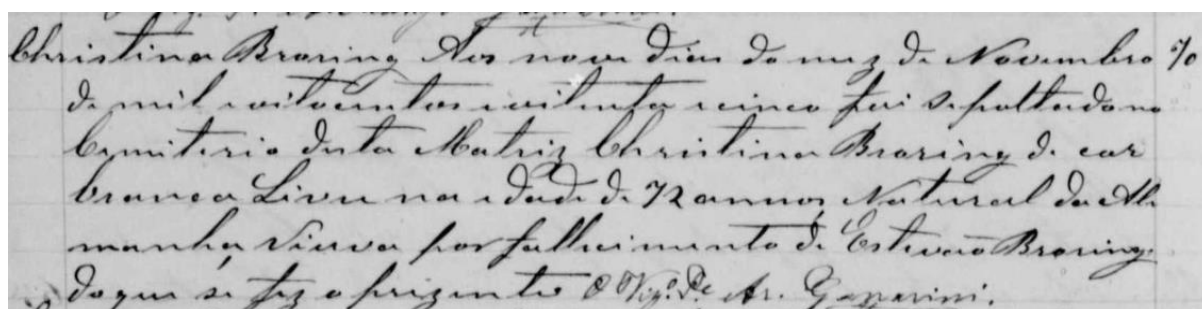 Christina Broring Aos nove dias do mez de Novembro %
de mil e oitocentos e oitenta e cinco foi sepultada no
Cemiterio desta Matriz Christina Broring de cor
branca Livre na edade de 72 annos, Natural da Ale
manha, Viuva por fallecimento de Estevão Broring.
do que se fez o prezente O Vigº. Pe. Ar. Gasparini.